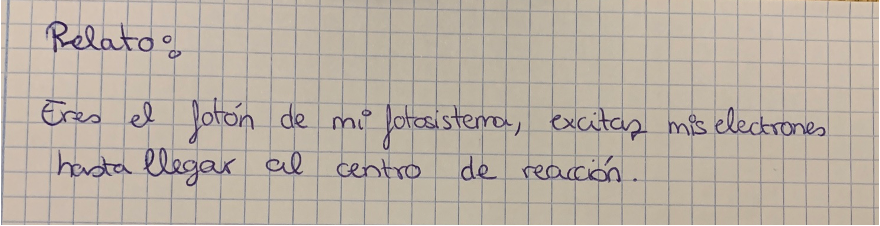 Relato:
Eres el fotón de mi fotosistema, excitas mis electrones
hasta llegar al centro de reacción.